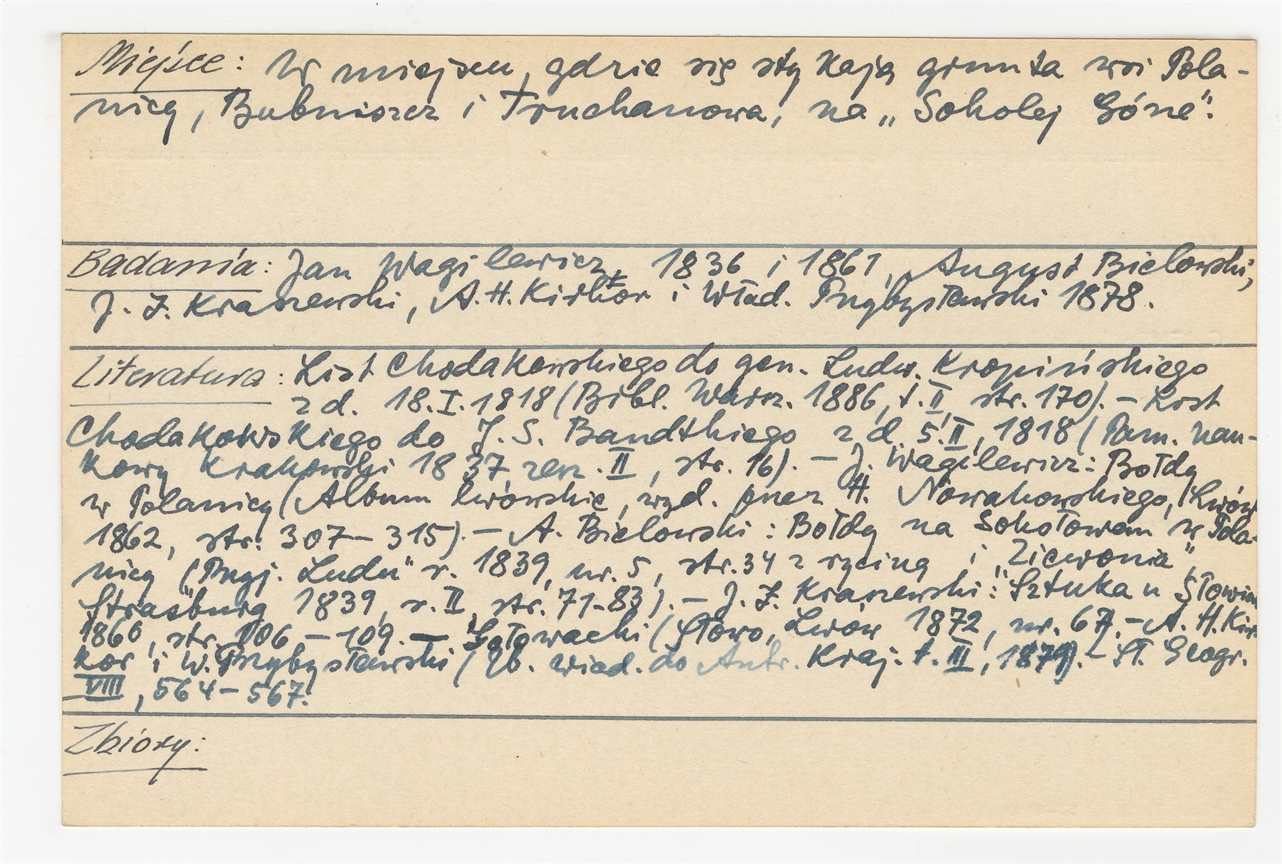 Miejsce: W miejscu, gdzie się stykają grunta wsi Pola-
nicy, Bubniszcz i Truchanowa, na „Sokolej Górze".
Badania: Jan Wagilewicz, 1836 i 1861, August Bielowski,
J. I. Kraszewski, A. H. Kirkor i Wład. Przybysławski 1878.
Literatura: List Chodakowskiego do gen. Ludw. Kropińskiego
z d. 18.I.1818 (Bibl. Warsz. 1886, t. II, str. 170). – List
Chodakowskiego do J. S. Bandtkiego z d. 5.II, 1818 (Pam. nau-
kowy krakowski 1837 zesz. II, str. 16). – J. Wagilewicz: Bołdy
w Polanicy (Album lwowskie, wyd. przez H. Nowakowskiego, Lwów
1862, str. 307–315). – A. Bielowski: Bołdy na Sokołowem w Pola-
nicy („Przyj. Ludu" r. 1839, nr. 5, str. 34 z ryciną i „Ziewonia",
Strasburg 1839, r. II, str. 71–83). – J. I. Kraszewski: Sztuka u Słowian
1860, str. 106–109. – Hołowacki (Słowo, Lwów 1872, nr. 67. – A. H. Kir-
kor i W. Przybysławski (Zb. wiad. do Antr. Kraj. t. III, 1879). – Sł. Geogr.
VIII, 564–567.
Zbiory: